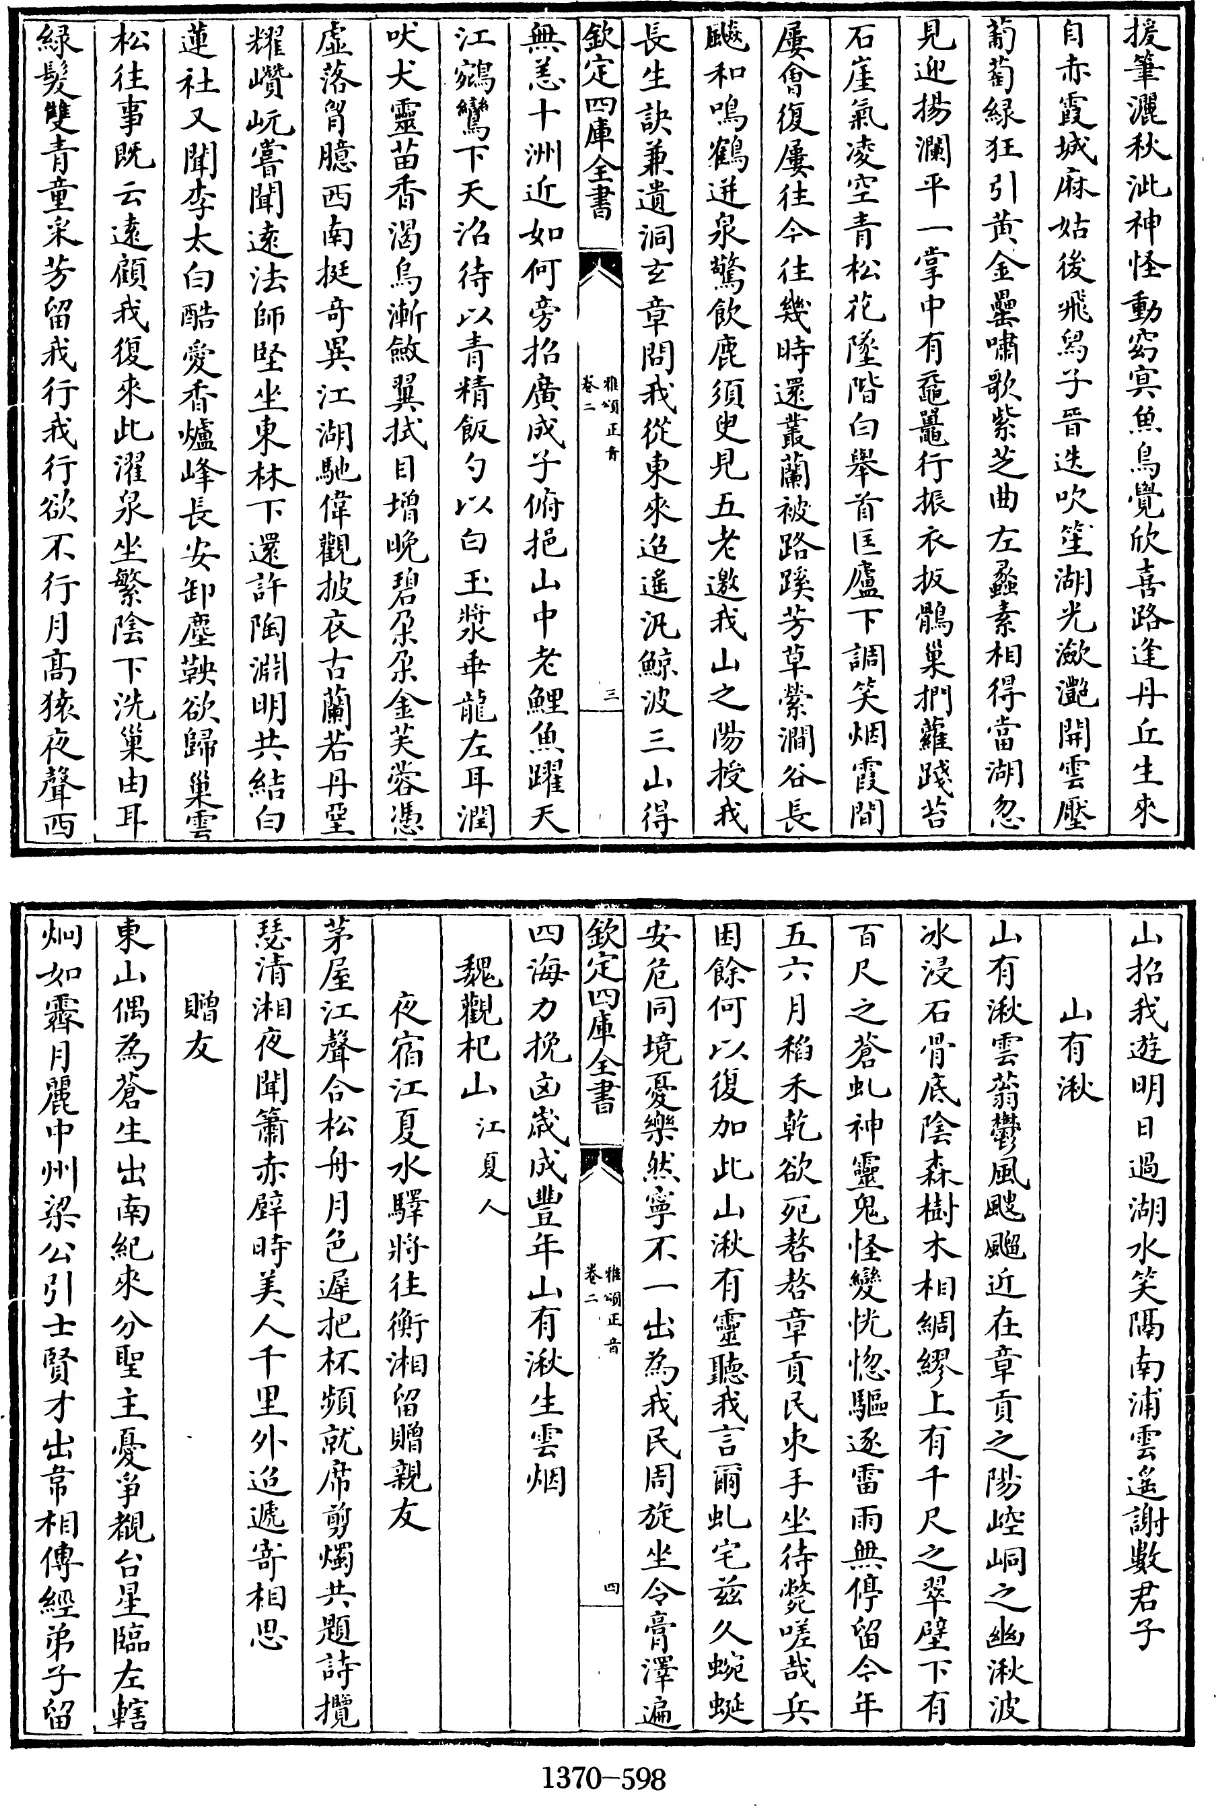 援筆灑秋泚神怪動窈冥魚鳥覺欣喜路逢丹丘生來
自赤霞城麻姑後飛舄子晉迭吹笙湖光瀲灔開雲壓
葡萄緑狂引黄金罍嘯歌紫芝曲左蠡素相得當湖忽
見迎揚瀾平一掌中有黿鼉行振衣扳鶻巢捫蘿踐苔
石崖氣凌空青松花墜階白舉首匡廬下調笑烟霞間
屢會復屢往今往幾時還叢蘭被路蹊芳草縈澗谷長
飈和鳴鶴迸泉驚飲鹿須臾見五老邀我山之陽授我
長生訣兼遺洞玄章問我從東來迢遥汎鯨波三山得
欽定四庫全書
雅頌正音
卷二
三
無恙十洲近如何旁招廣成子俯挹山中老鯉魚躍天
江鵷鸞下天沼待以青精飯勺以白玉漿垂龍左耳潤
吠犬靈苗香渴烏漸斂翼拭目增晚碧朶朶金芙蓉憑
虛落胷臆西南挺竒異江湖馳偉觀披衣古蘭若丹堊
耀巑岏嘗聞逺法師堅坐東林下還許陶淵明共結白
蓮社又聞李太白酷愛香爐峰長安卸塵鞅欲歸巢雲
松往事既云逺顧我復來此濯泉坐繁陰下洗巢由耳
緑髮雙青童采芳留我行我行欲不行月髙猿夜聲西
山招我遊明日過湖水笑隔南浦雲遥謝數君子
山有湫
山有湫雲蓊鬱風颼飀近在章貢之陽崆峒之幽湫波
冰浸石骨底陰森樹木相綢繆上有千尺之翠壁下有
百尺之蒼虬神靈鬼怪變恍惚驅逐雷雨無停留今年
五六月稻禾乾欲死嗸嗸章貢民束手坐待斃嗟哉兵
困餘何以復加此山湫有靈聽我言爾虬宅兹久蜿蜒
安危同境憂樂然寧不一出為我民周旋坐令膏澤遍
欽定四庫全書
雅頌正音
卷二
四
四海力挽凶歲成豐年山有湫生雲烟
魏觀杞山江夏人
夜宿江夏水驛將往衡湘留贈親友
茅屋江聲合松舟月色遲把杯頻就席剪燭共題詩攬
瑟清湘夜聞簫赤壁時美人千里外迢遞寄相思
贈友
東山偶為蒼生出南紀來分聖主憂爭覩台星臨左轄
炯如霽月麗中州梁公引士賢才出常相傳經弟子留
1370-598